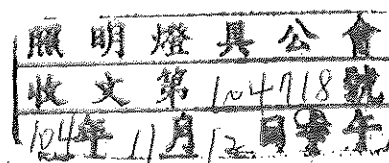 照明燈具公會
收文第104718號
104年11月12日 午